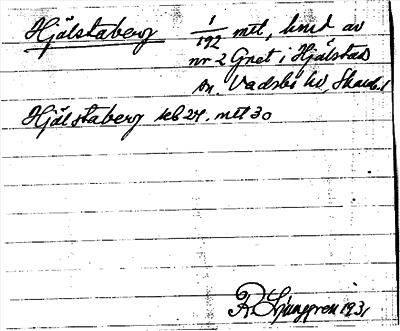 Hjälstaberg 1/192 mtl, kind av
nr 2 Gret i Hjälstad
sn. Vadsbo hd, Skarab. l
Hjälstaberg jeb 24. mtl 30
R. Ljunggren 1931